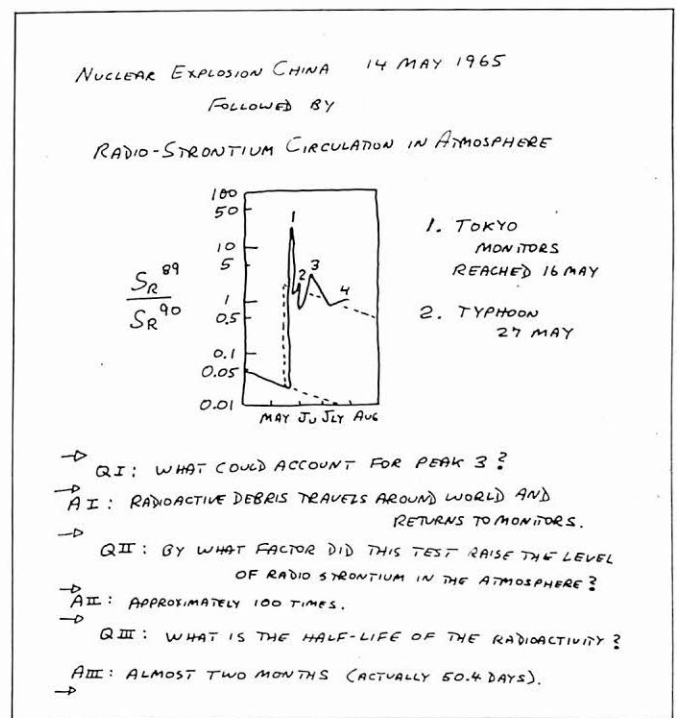 NUCLEAR EXPLOSION CHINA 14 MAY 1965
FOLLOWED BY
RADIO-STRONTIUM CIRCULATION IN ATMOSPHERE
100
50
10
5
1
0.5
0.1
0.05
0.01
SR 89
SR 90
1
2
3
4
MAY JU JLY AUG
1. TOKYO
MONITORS
REACHED 16 MAY
2. TYPHOON
27 MAY
QI: WHAT COULD ACCOUNT FOR PEAK 3?
AI: RADIOACTIVE DEBRIS TRAVELS AROUND WORLD AND
RETURNS TO MONITORS.
QII: BY WHAT FACTOR DID THIS TEST RAISE THE LEVEL
OF RADIO STRONTIUM IN THE ATMOSPHERE?
AII: APPROXIMATELY 100 TIMES.
QIII: WHAT IS THE HALF-LIFE OF THE RADIOACTIVITY?
AIII: ALMOST TWO MONTHS (ACTUALLY 50.4 DAYS).